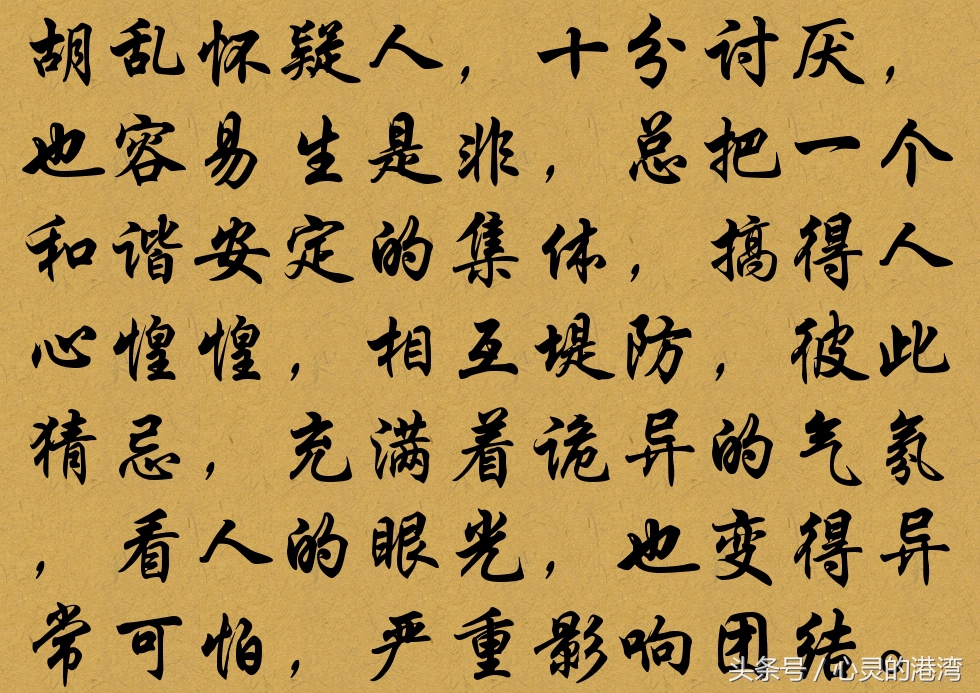 胡乱怀疑人，十分讨厌，
也容易生是非，总把一个
和谐安定的集体，搞得人
心惶惶，相互堤防，彼此
猜忌，充满着诡异的气氛
，看人的眼光，也变得异
常可怕，严重影响团结。
头条号／心灵的港湾